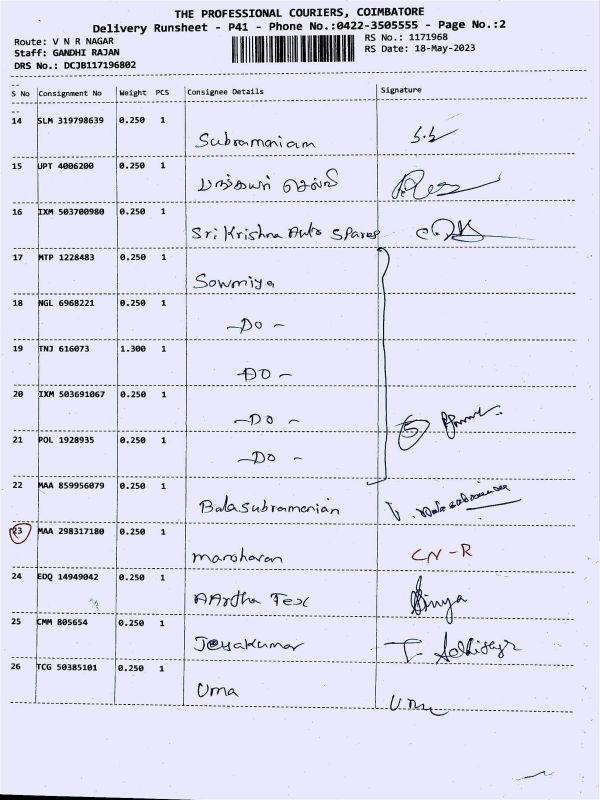 THE PROFESSIONAL COURIERS, COIMBATORE
Delivery Runsheet - P41 - Phone No.:0422-3505555 - Page No.:2
Route: V N R NAGAR
RS No.: 1171968
Staff: GANDHI RAJAN
RS Date: 18-May-2023
DRS No.: DCJB117196802
S No Consignment No Weight PCS Consignee Details Signature
14 SLM 319798639 0.250 1 Subramaniam S.S
15 UPT 4006200 0.250 1
16 IXM 503700980 0.250 1 Sri Krishna Auto Spares
17 MTP 1228483 0.250 1 Sowmiya
18 NGL 6968221 0.250 1 -DO-
19 TNJ 616073 1.300 1 -DO-
20 IXM 503691067 0.250 1 -DO- 5
21 POL 1928935 0.250 1 -DO-
22 MAA 859956079 0.250 1 Balasubramanian
23 MAA 298317180 0.250 1 manoharan CN-R
24 EDQ 14949042 0.250 1 AArtha Tex
25 CMM 805654 0.250 1 Jeyakumar
26 TCG 50385101 0.250 1 Uma Uma